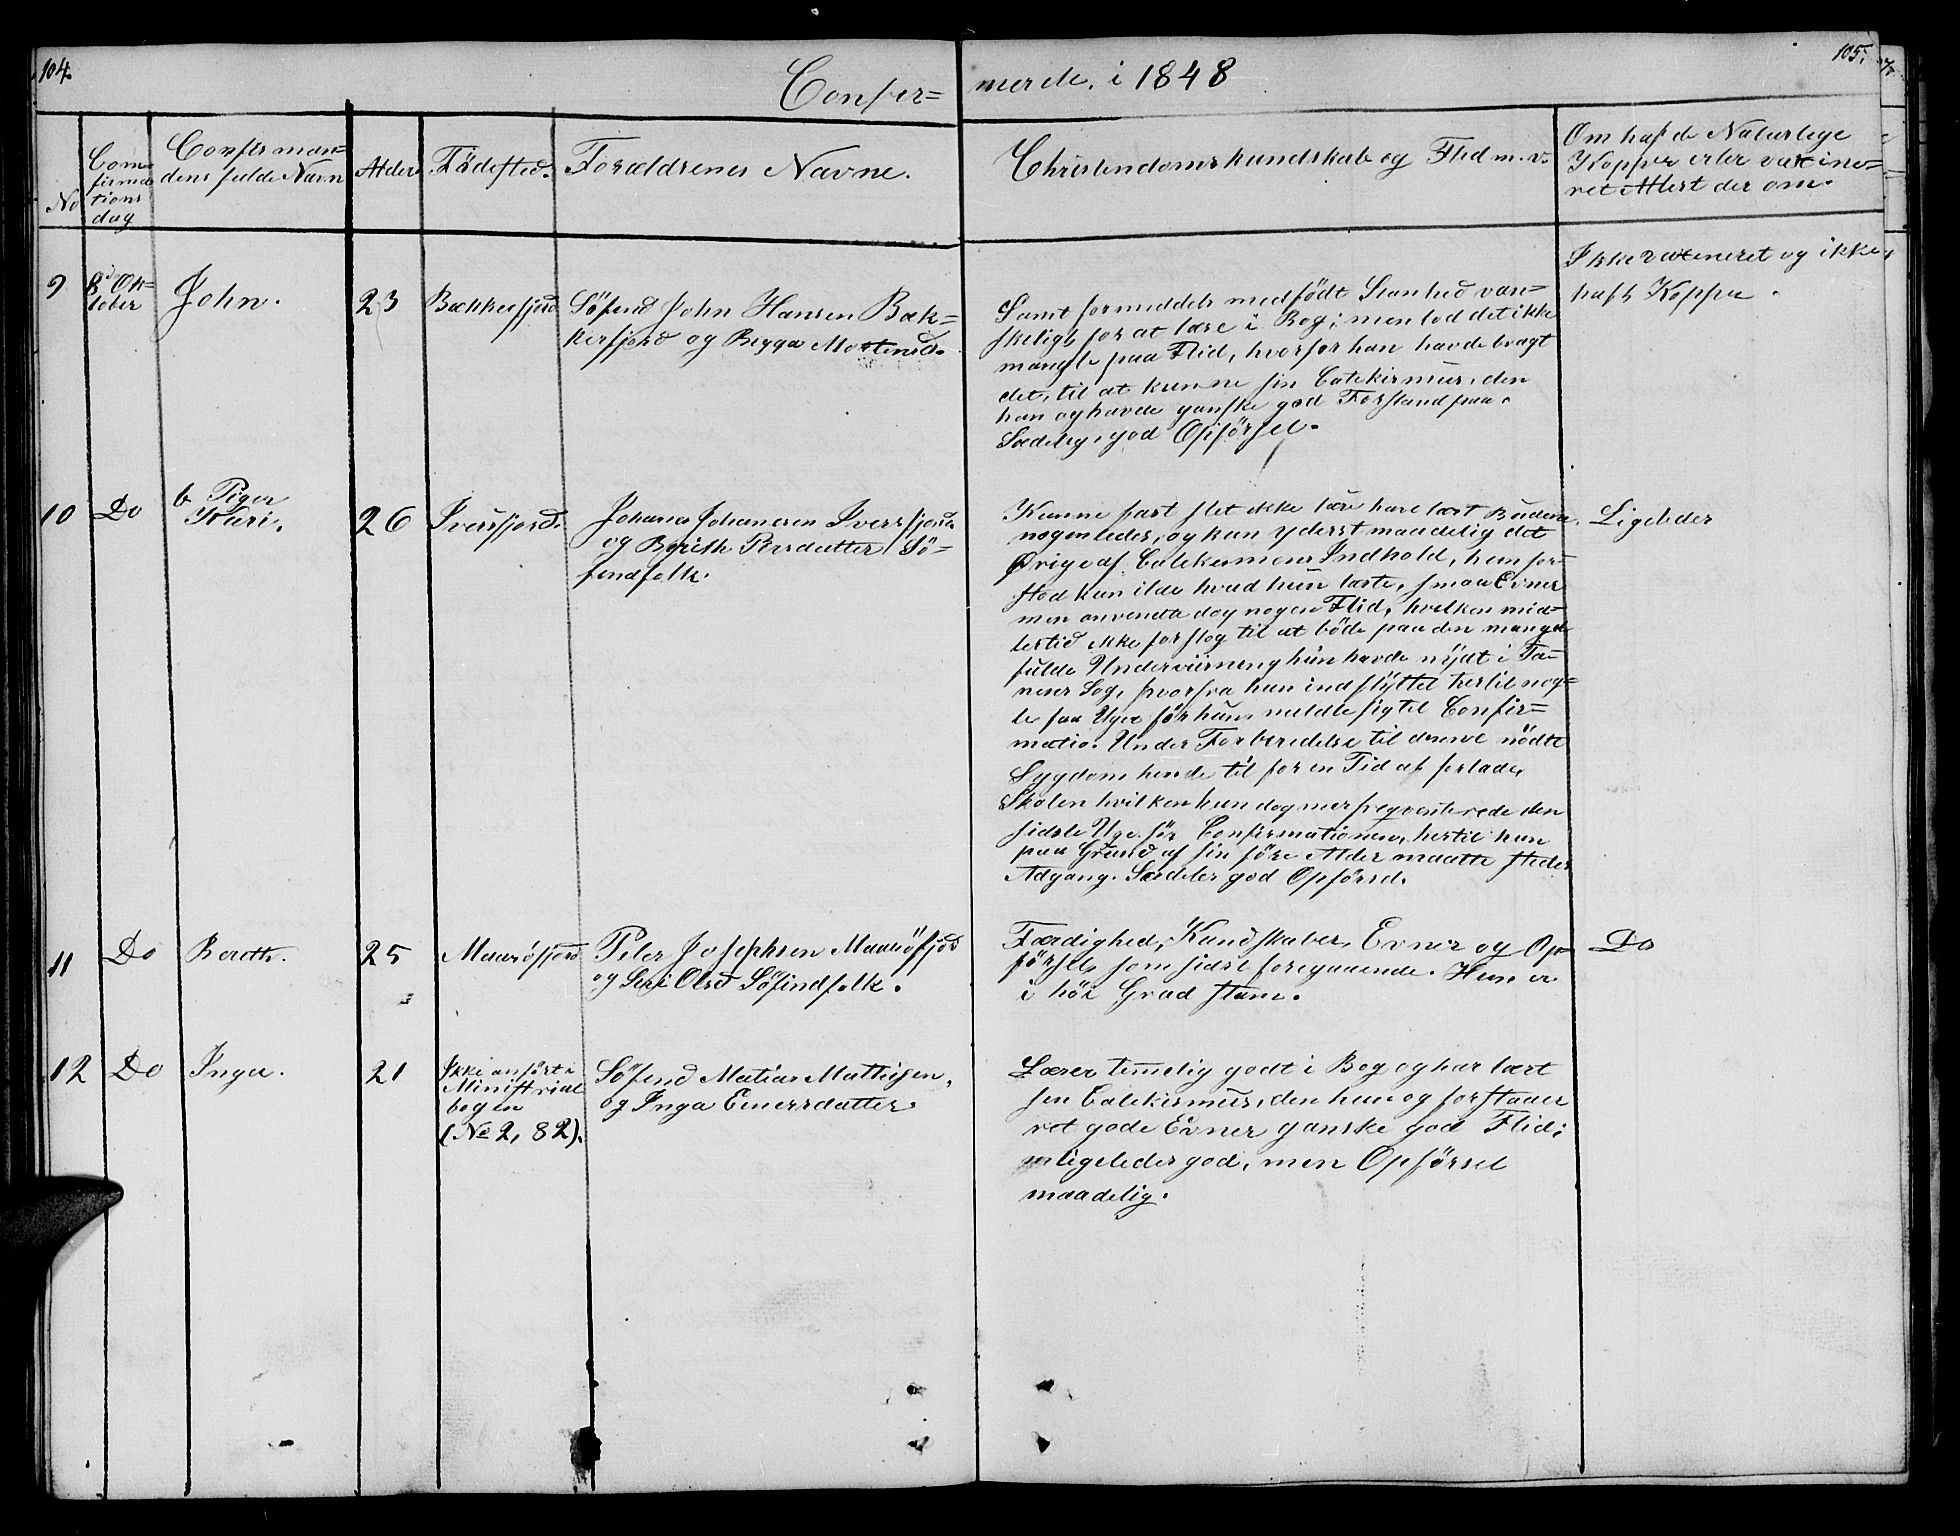 104.
105.
Confir=
merde. i 1848
No
Con=
firma
tions
dag
Confirman=
dens fulde Navn
Alder
Födested.
Forældrenes Navne.
Christendomskundskab og Flid m. v.
Om haft de Naturlige
Kopper eller vaxine=
ret Attest der om.
9
8de Ok=
tober
John.
23
Bækkerfjord
Söfind John Hansen Bæk=
kerfjord og Bigga Mortensd.
Samt formedelst medfödt Stamhed van=
skeligt for at lære i Bog; men lod det ikke
mangle paa Flid, hvorfor han havde bragt
det, til at kunne sin Catekismus, den
han og havde ganske god Forstand paa.
Sædelig, god Opförsel.
Ikke vaxineret og ikke
haft Kopper.
10
Do
b Piger
Kuri.
26
Iversfjord.
Johanes Johanesen Iversfjord
og Berith Persdatter Sö=
findfolk.
Kunne fast slet ikke lære have lært Budene
nogenledes, og kun yderst maadelig det
Övrige af Catekismens Indhold, hun for=
stod kun ilde hvad hun læste, smaa Evner
men anvendte dog nogen Flid, hvilken mid=
lertid ikke forslog til at böde paa den mangel
fulde Underviisning hun havde nÿdt i Ta=
nens Sog, hvorfra hun indflÿttet hertil nog=
le faa Uger för hun meldte sig til Confir=
matio. Under Forberedelse til denne nödte
Sygdom hende til for en Tid at forlade,
Skolen hvilken hun dog mer freqventerede den
sidste Uge för Confirmationen, hertil hun
paa Grund af sin före Alder maatte stedes
Adgang. Særdeles god Opförsel.
Ligeledes
11
Do
Bereth.
25
Maaröfjord
Peter Josephsen Maaröfjord
og Siri Olsd Söfindfolk.
Færdighed, Kundskaber, Evner og Op=
försel, som sidst foregaaende. Hun er
i höi Grad stam.
Do
12
Do
Inga.
21
Ikke anfört i
Ministrial
bogen
(No 2, 82).
Söfind Matias Mathisen,
og Inga Emersdatter
Læser temelig godt i Bog og har lært
sin Catekismus, den hun og forstaaer
ret gode Evner ganske god Flid;
ligeledes god, men Opförsel
maadelig.